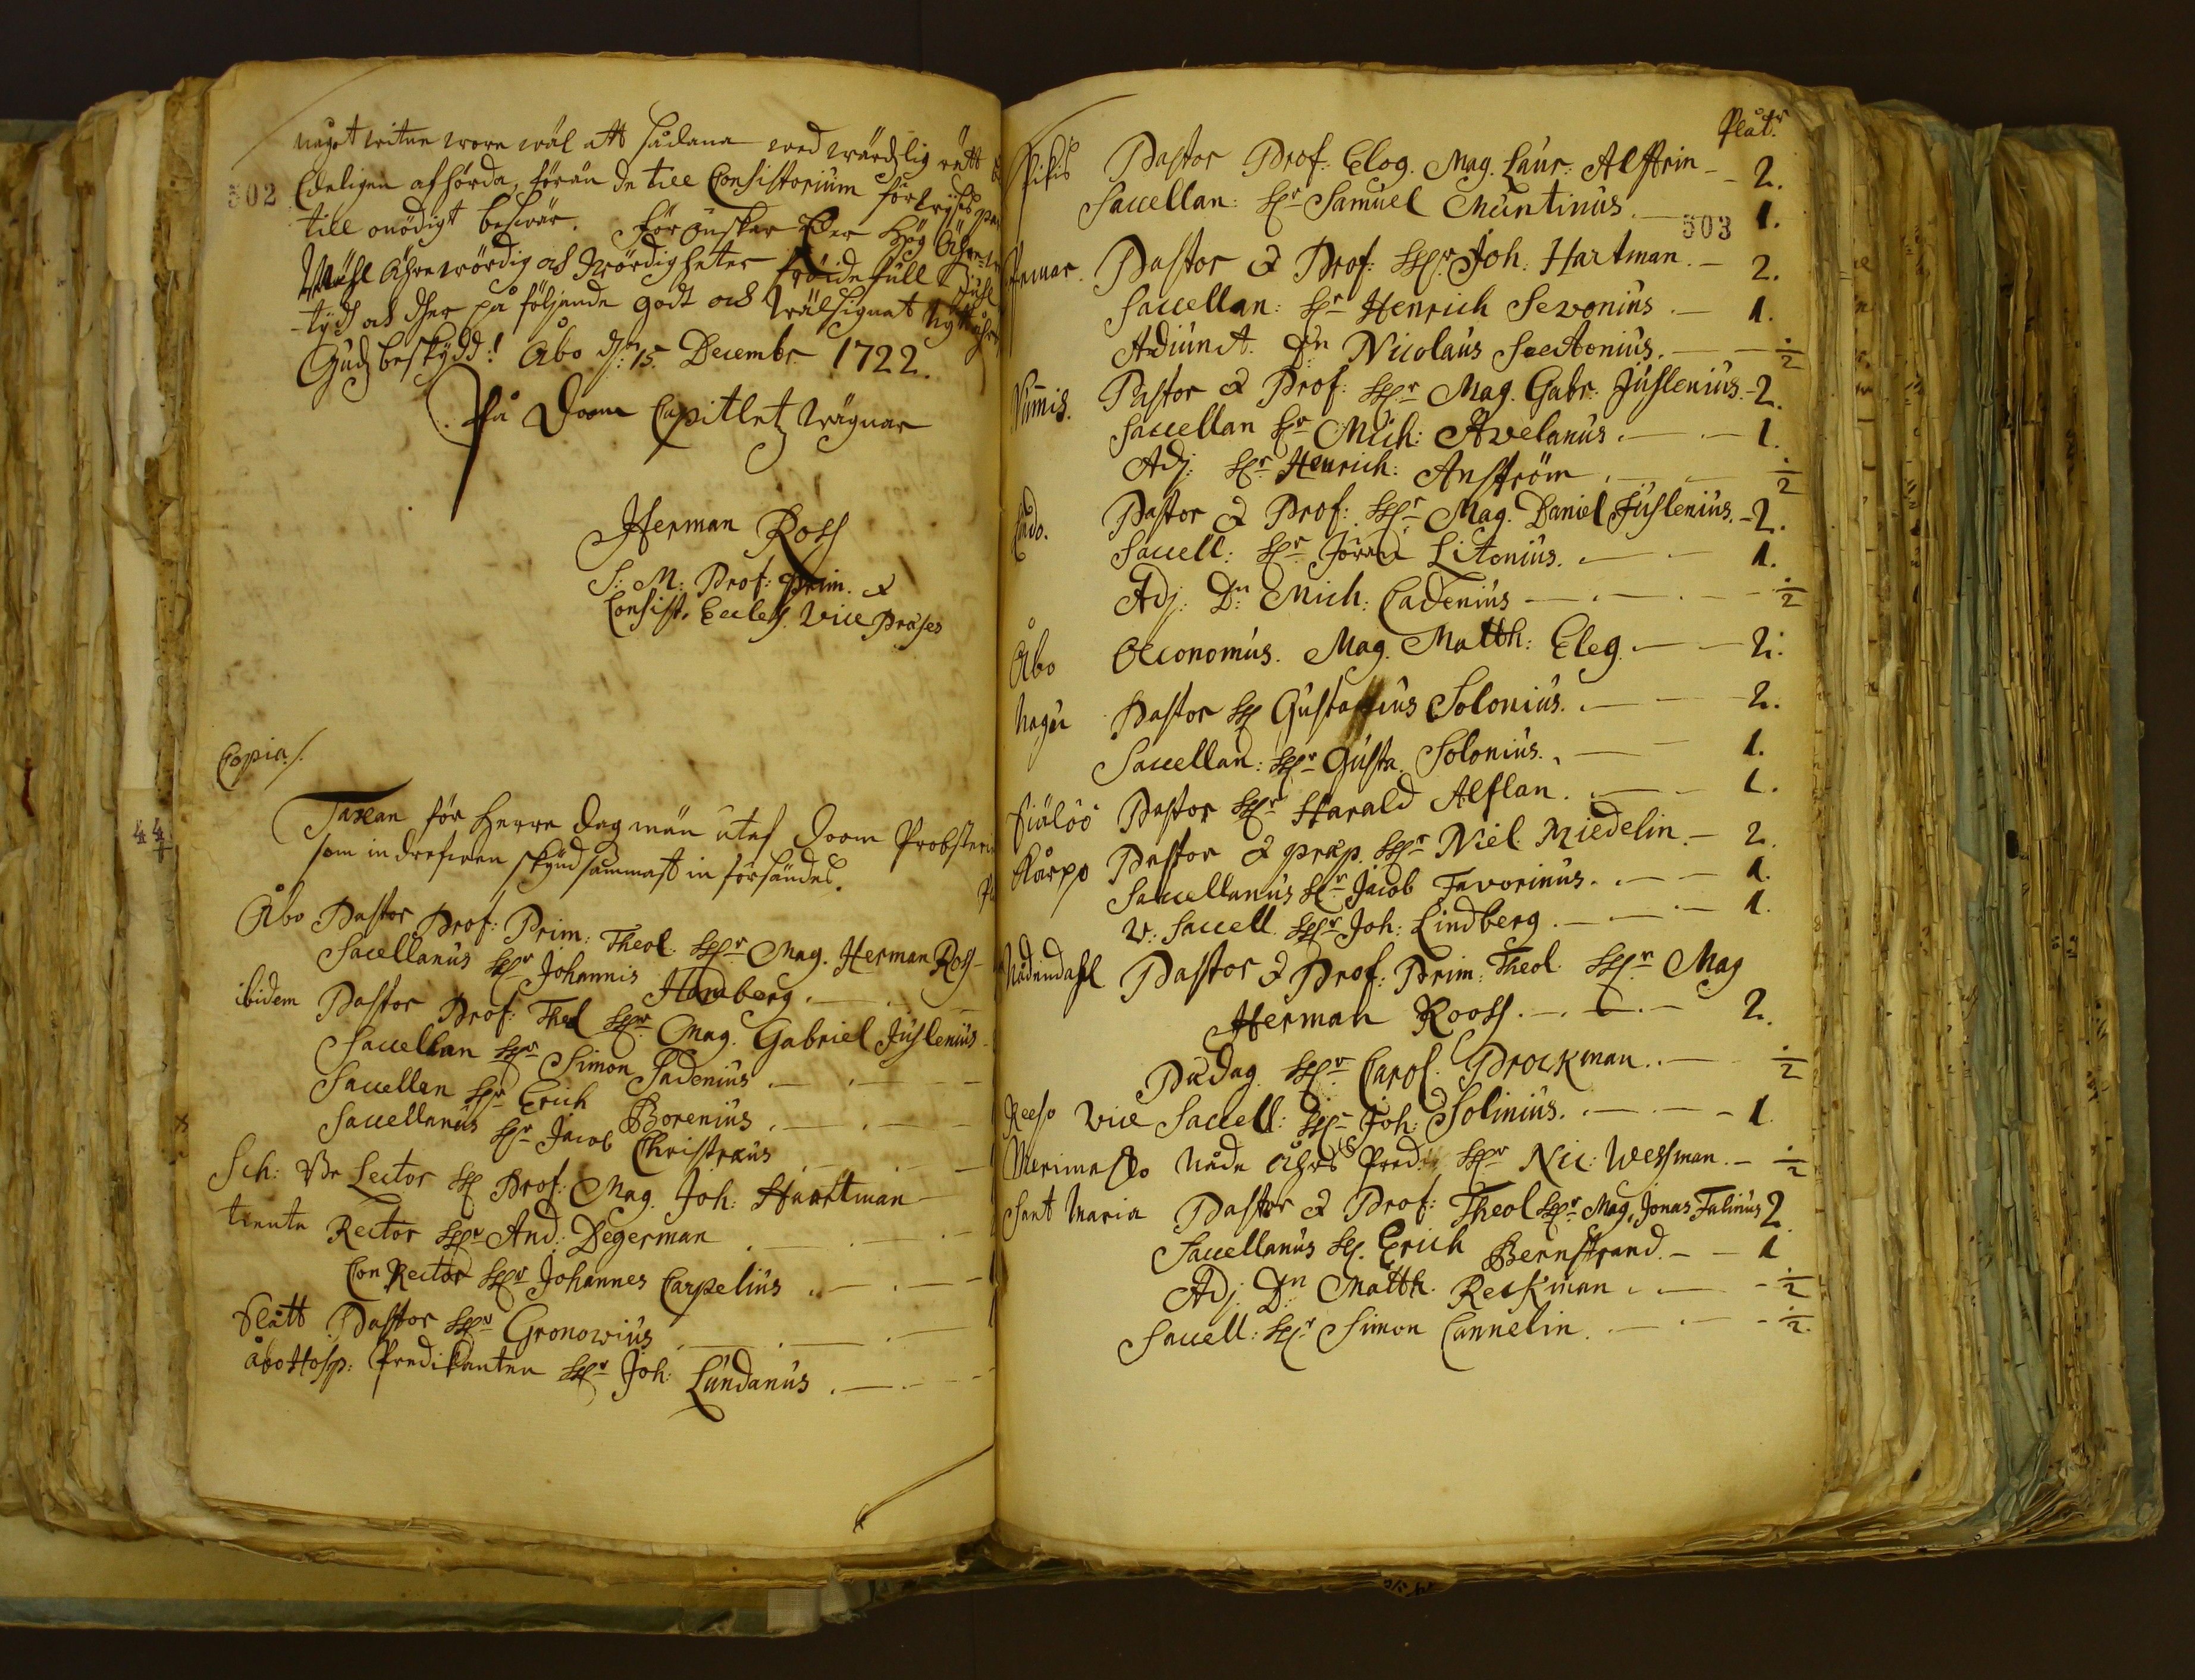 502
något witne wore wäl att sådana wed wärdzlig rätt
Edeligen afhörda, förän de till Consistorium förwijses
till onödigt beswär. Förönskar Eer Hög Ährew
Wähl Ährewördig och Wördigheter fröidefull Juhl
tijd och der på följande godt och Wälsignat Nytt åhr
Gudz beskydd! Åbo d: 15. Decembr. 1722.
På Doom Capitletz wägnar
Herman Ross
S: M: Prof: Prim. &
Consist. Eccles. Vice Præses
Copia /.
44
Taxan för Herre dagmän utaf Doom Probsteri
som indrefwen skyndsammast in försändes.
Åbo Pastor Prof: Prim: Theol. HErr Mag. Herman Ross
Sacellanus HEr Johannis Hamberg.
ibidem Pastor Prof: Theol HErr Mag. Gabriel Juslenius
Sacellan HEr Simon Padenius
Sacellan HEr Erich Borenius
Sacellanus HEr Jacob Christræus
Sch: Lector H Prof: Mag. Joh: Haartman
Rector HEr And: Degerman
Con Rector HEr Johannes Carpelius
Slått Pastor HEr Gronowius
Åbo Hosp: Predikanten HEr Joh: Lundanus
Plåtr
503
Pikis Pastor Prof: Eloq. Mag. Laur: Alftrin 2.
Sacellan: Hr Samuel Muntinus. 1.
Pemar. Pastor & Prof: HEr Joh: Hartman. 2.
Sacellan: Hr Henrich Sevonius. 1.
Adiunct. Dn Nicolaus Sectonius. ½
Numis. Pastor & Prof: HEr Mag. Gabr: Juslenius. 2.
Sacellan Hr Mich: Avelanus. 1.
Adj: Hr Henrich: Anström ½
Pastor & Prof: HEr Mag. Daniel Juslenius. 2.
Sacell: Hr Jöran Litonius. 1.
Adj: Dn Mich: Cadenius ½
Åbo Oeconomus. Mag. Matth: Eleg. 2.
Nagu Pastor H Gustavius Solonius. 2.
Sacellan: HEr Gusta. Solonius. 1.
Siälöö Pastor HEr Harald Alflan. 1.
Kårpo Pastor & præp. HEr Niel. Miedelin. 2.
Sacellanus Hr Jacob Favorinus. 1.
V: Sacell. HEr Joh: Lindberg. 1.
Nådendahl Pastor & Prof: Prim: Theol. HEr Mag
Herman Rooss. 2.
Pædag. HEr Carol. Prockman. ½
Reeso Vice Sacell: HEr Joh: Solinius. 1
Merimasko Nåde åhrs Pred: HEr Nic: Wessman. ½
Sant Maria Pastor & Prof: Theol HEr Mag. Jonas Falinus 2.
Sacellanus H. Erich Bernstrand. 1
Adj: Dn Matth. Reckman. ½
Sacell: Hr Simon Cannelin. ½.